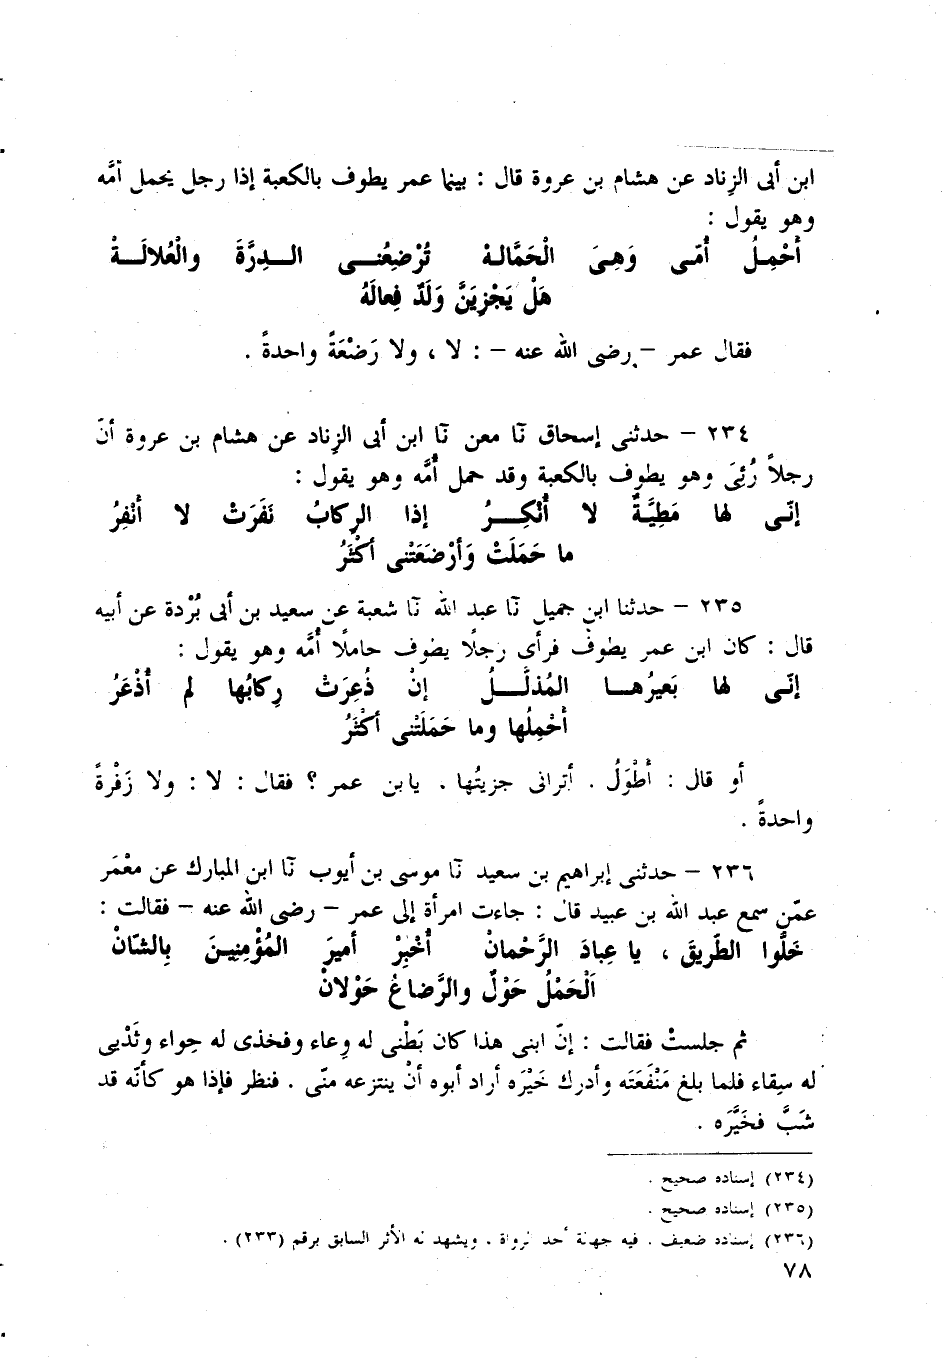 ابن أبى الزِناد عن هشام بن عروة قال : بينما عمر يطوف بالكعبة إذا رجل يحمل أمَّه
وهو يقول :
أَحْمِلُ أُمّى وَهِىَ الْحَمَّالهْ تُرْضِعُنى الدِرَّةَ والْعُلالَهْ
هَلْ يَجْزِيَنَّ وَلَدٌ فِعالَهُ
فقال عمر – رضى الله عنه – : لا ، ولا رَضْعَةً واحدةً .
٢٣٤ – حدثنى إسحاق نّا معن نّا ابن أبى الزِناد عن هشام بن عروة أنّ
رجلاً رُئِىَ وهو يطوف بالكعبة وقد حمل أُمَّه وهو يقول :
إنّى لها مَطِيَّةٌ لا أُنْكِرُ إذا الرِكابُ نَفَرَتْ لا أنْفِرُ
ما حَمَلَتْ وَأرْضَعَتْنى أكْثَرُ
٢٣٥ – حدثنا ابن جميل نّا عبد الله نّا شعبة عن سعيد بن أبى بُرْدة عن أبيه
قال : كان ابن عمر يطوف فرأى رجلًا يطوف حاملًا أُمَّه وهو يقول :
إنّى لها بَعيرُها المُذلَّلُ إنْ ذُعِرَتْ رِكابُها لم أُذْعَرُ
أحْمِلُها وما حَمَلَتْنى أكْثَرُ
أو قال : أطْوَلُ . أترانى جزيتُها . يابن عمر ؟ فقال : لا : ولا زَفْرةً
واحدةً .
٢٣٦ – حدثنى إبراهيم بن سعيد نّا موسى بن أيوب نّا ابن المبارك عن معْمَر
عمّن سمع عبد الله بن عبيد قال : جاءت امرأة إلى عمر – رضى الله عنه – فقالت :
خَلُّوا الطّريقَ ، يا عِبادَ الرَّحْمانْ أُخْبِرْ أميرَ المُؤْمِنينَ بِالشّانْ
اَلْحَمْلُ حَوْلٌ والرَّضاعُ حَوْلانْ
ثم جلستْ فقالت : إنّ ابنى هذا كان بَطْنى له وِعاء وفخذى له حِواء وثَدْيى
له سِقاء فلما بلغ مَنْفَعَته وأدرك خَيْرَه أراد أبوه أنْ ينتزعه منّى . فنظر فإذا هو كأنّه قد
شَبَّ فخَيَّرَه .
(٢٣٤) إسناده صحيح .
(٢٣٥) إسناده صحيح .
(٢٣٦) إسناده ضعيف . فيه جهالة أحد الرواة . ويشهد له الأثر السابق برقم (٢٣٣) .
٧٨